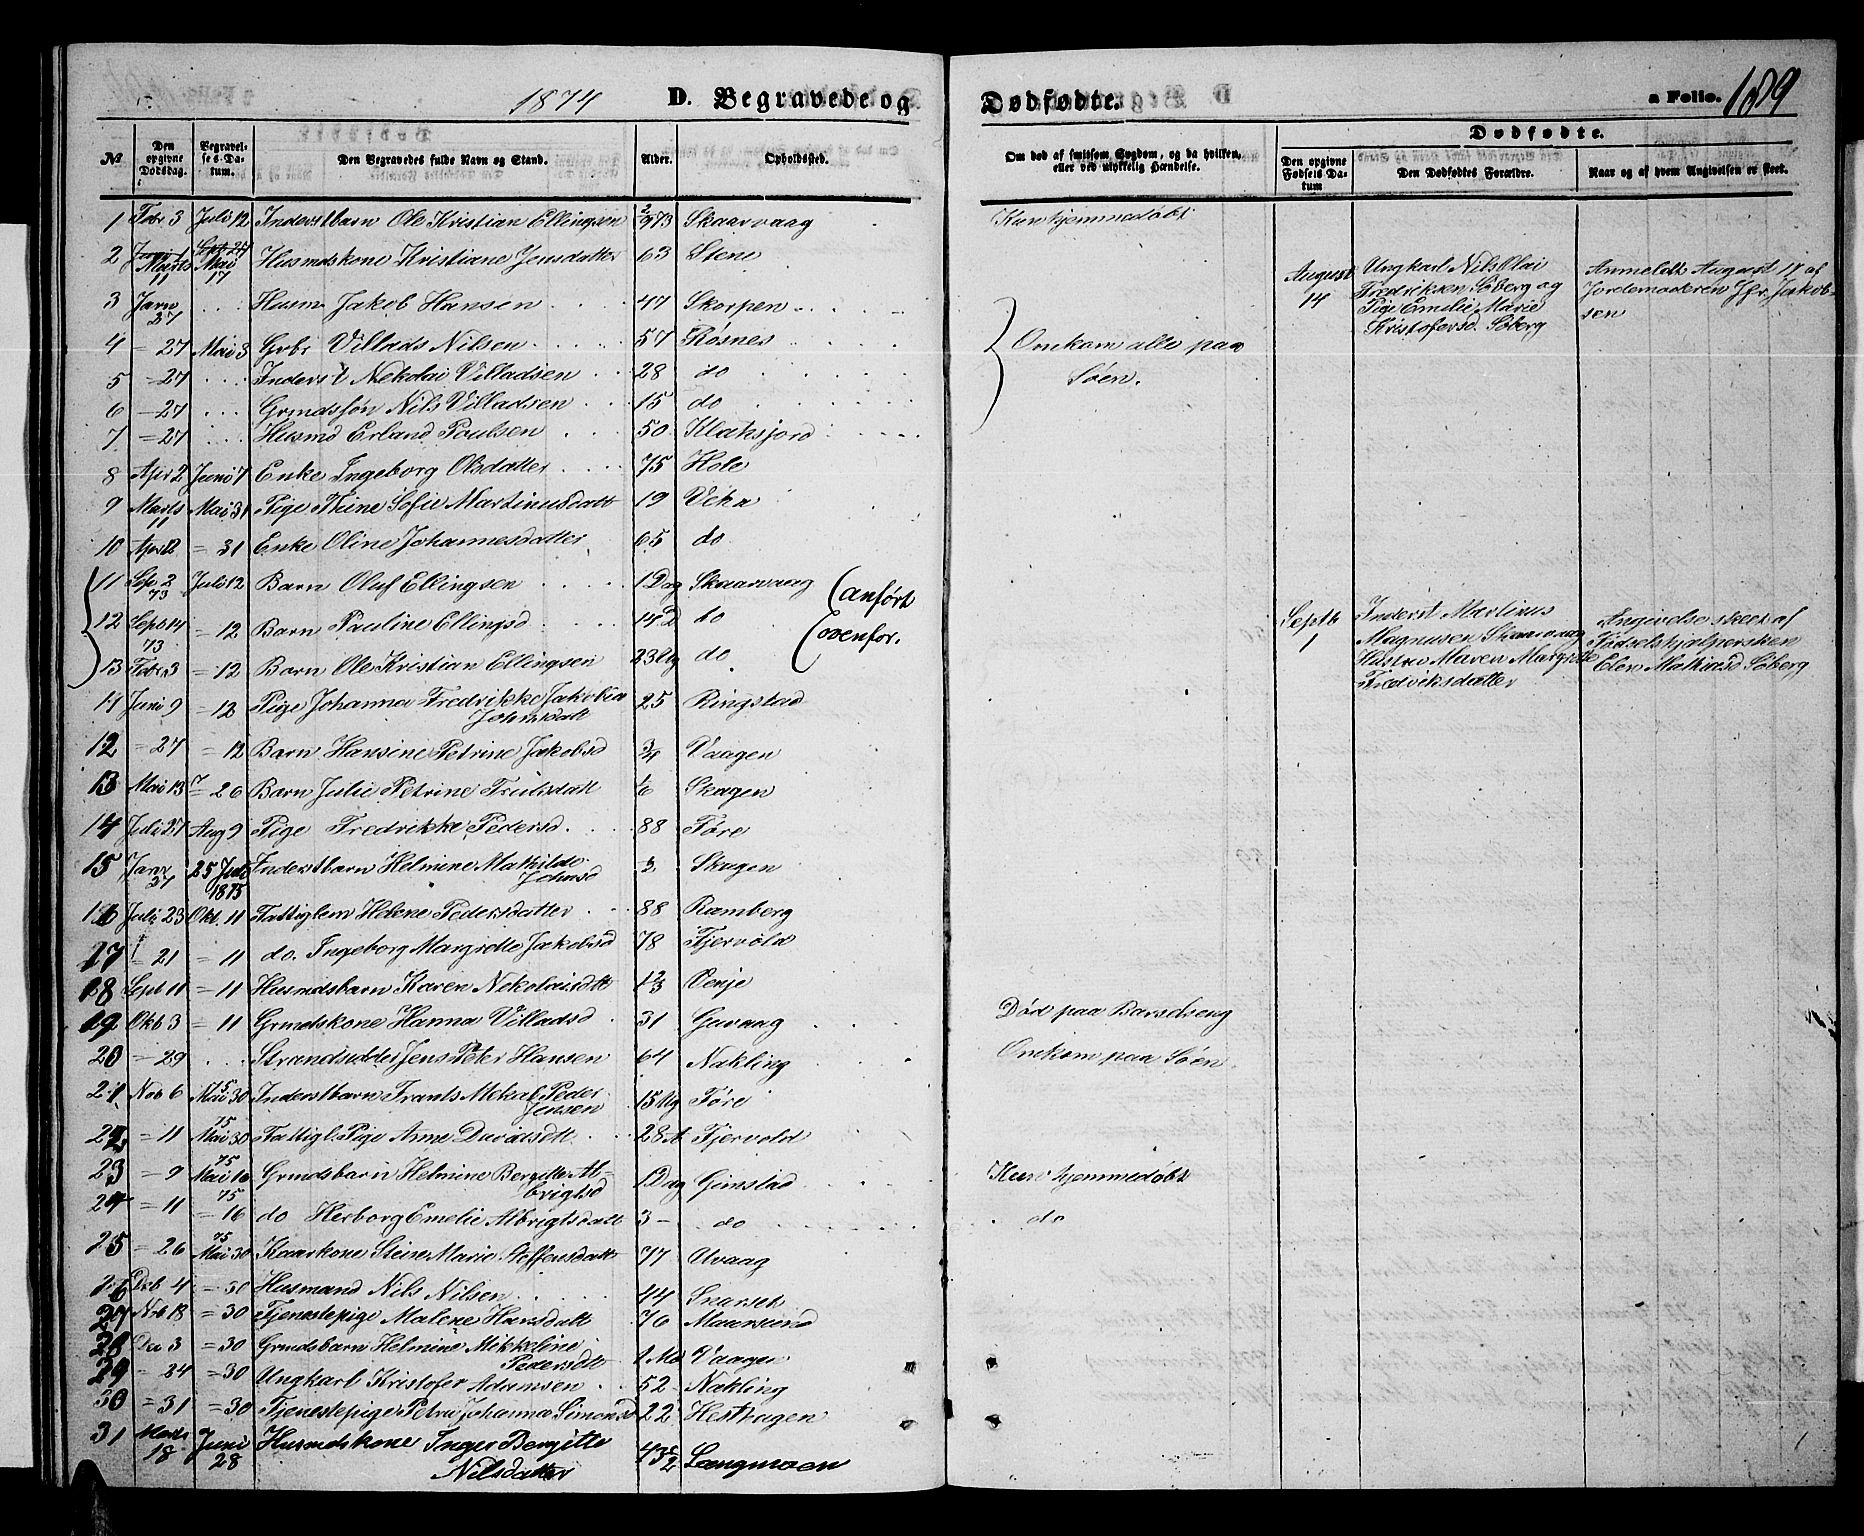 1874 D. Begravede og Dødfødte. a Folio. 189
№
Den opgivne Dødsdag.
Begravelses-Datum.
Den Begravedes fulde Navn og Stand.
Alder.
Opholdssted.
Om død af smitsom Sygdom, og da hvilken, eller ved ulykkelig Hændelse.
Dødfødte.
Den opgivne Fødsels-Datum
Den Dødfødtes Forældre.
Naar og af hvem Angivelsen er skeet.
1 Febr 3 Juli 12 Inderstbarn Ole Kristian Ellingsen Skaarvaag Kun hjemmedøbt
2 Marts 11 Mai 17 Husmdskone Kristiane Jensdatter 63 Stene
3 Janr 27 Husm Jakob Hansen 47 Skorpen
4 = 27 Mai 3 Grbr Villads Nilsen 57 Røsnes
5 = 27 Inderst Nekolai Villadsen 28 do
6 = 27 Grmdssøn Nils Villadsen 15 do
7 = 27 Husmd Erland Poulsen 50 Klaksjord
Omkom alle paa
Søen.
8 Apr 2 Juni 7 Enke Ingeborg Olsdatter 75 Hole
9 Marts 11 Mai 31 Pige Trine Sofie Martinusdatt 19 Vika
10 Apr 12 = 31 Enke Oline Johannesdatter 65 do
11 Sep 2 73 Juli 12 Barn Oluf Ellingsen 1 Dag Skaarvaag (anført
12 Septb 14 73 = 12 Barn Pauline Ellingsd 14 D do ovenfor.
13 Febr 3 = 12 Barn Ole Kristian Ellingsen 23 Ug do
11 Juni 9 = 12 Pige Johanna Fredrikke Jakobia
Johnsdatt 25 Ringstad
12 = 27 = 12 Barn Hansine Petrine Jakobsd 3/4 Vaagen
13 Mai 13 = 26 Barn Julie Petrine Trulsdatt Skagen
14 Juli 27 Aug 9 Pige Fredrikke Pedersd. 88 Føre
15 Janr 27 25 Juli 1875 Inderstbarn Helmine Mathilde
Johnsd Skagen
16 Juli 23 Okt. 11 Fattiglem Helene Pedersdatter 88 Ramberg
17 = 21 = 11 do. Ingeborg Margrette Jakobsd 78 Fjervold
18 Sept 11 = 11 Husmdsbarn Karen Nekolaisdtt 1 2/3 Venje
19 Oktb 3 = 11 Grmdskone Hanna Villadsd 31 Guvaag Død paa Barselseng
20 = 29 Strandsidder Jens Peter Hansen 64 Nakling Omkom paa Søen.
21 Nob 6 75 Mai 30 Inderstbarn Frants Mekal Peder
Jensen 15 Ug Føre
22 = 11 75 Mai 30 Fattigl. Pige Anne Davidsdtt 28 A Fjervold
23 = 9 75 Mai 16 Grmdsbarn Helmine Bergitte Al-
brigtsd 1 Dag Gimstad Kun hjemmedøbt
24 = 11 75 = 16 do Herborg Emelie Albrigtsdatt 3 - do do
25 = 26 75 Mai 30 Kaarkone Stine Marie Steffensdatt 77 Alvaag
26 Deb 4 = 30 Husmand Nils Nilsen 44 Snarset
27 Nob 18 = 30 Tjenestepige Malene Hansdatt 76 Maarsund
28 De 3 = 30 Grmdsbarn Helmine Mikkeline
Pedersdtt 1 Md Vaagen
29 = 24 = 30 Ungkarl Kristofer Adamsen 52 Nakling
30 = 31 = 30 Tjenestepige Petra Johanna Simonsd 22 Hesthagen
31 Marts 18 Juni 28 Husmdskone Inger Bergitte
Nilsdatter 43 1/2 Langmoen
August 14
Ungkarl Nils Olai
Fredriksen Søberg og
Pige Emelie Marie
Kristofersd. Søberg
Anmeldt August 17 af
Jordemoderen Jfr. Jakob-
sen
Septb 1
Inderst Martinus
Magnusen Skaarvaag
Hustru Maren Margrette
Fredriksdatter
Angivelse skeet af
Fødselshjælpersken
Elen Mathiasd Søberg